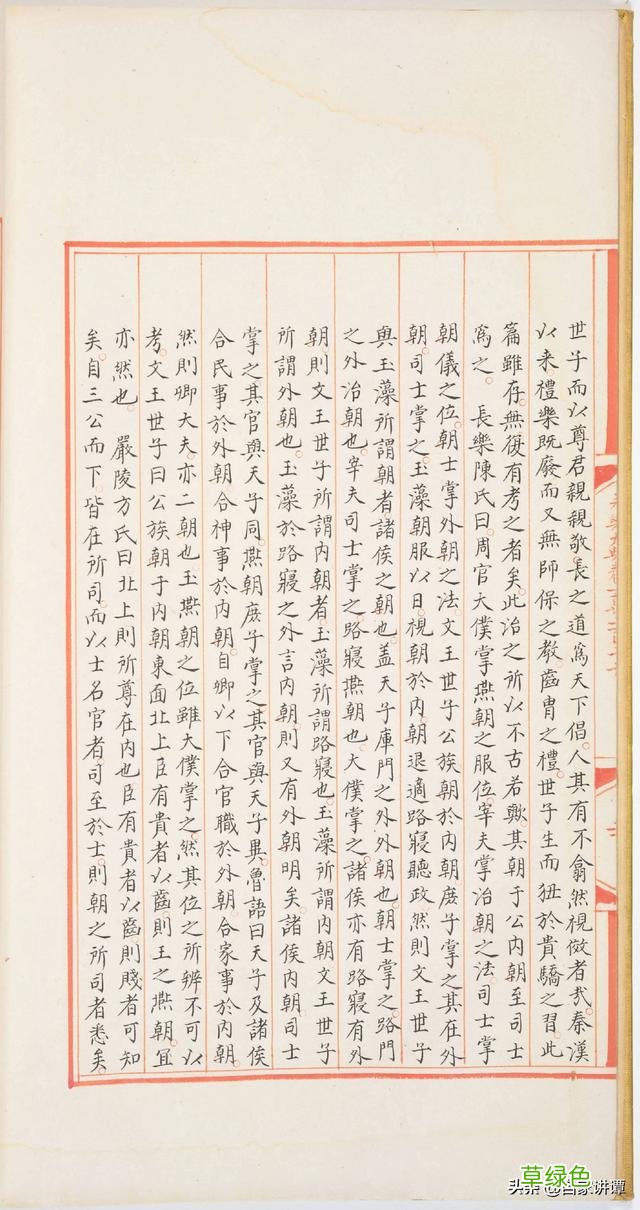 世子而以尊君親親敬長之道為天下倡人其有不翕然視傚者㢤秦漢
以來禮樂既廢而又無師保之教齒胄之禮世子生而狃於貴驕之習此
篇雖存無復有考之者矣此治之所以不古若歟其朝于公內朝至司士
為之 長樂陳氏曰周官大僕掌燕朝之服位宰夫掌治朝之法司士掌
朝儀之位朝士掌外朝之法文王世子公族朝於內朝庶子掌之其在外
朝司士掌之玉藻朝服以日視朝於內朝退適路寢聽政然則文王世子
與玉藻所謂朝者諸侯之朝也蓋天子庫門之外外朝也朝士掌之路門
之外治朝也宰夫司士掌之路寢燕朝也大僕掌之諸侯亦有路寢有外
朝則文王世子所謂內朝者玉藻所謂路寢也玉藻所謂內朝文王世子
所謂外朝也玉藻於路寢之外言內朝則又有外朝明矣諸侯內朝司士
掌之其官與天子同燕朝庶子掌之其官與天子異魯語曰天子及諸侯
合民事於外朝合神事於內朝自卿以下合官職於外朝合家事於內朝
然則卿大夫亦二朝也玉燕朝之位雖大僕掌之然其位之所辨不可以
考文王世子曰公族朝于內朝東面北上臣有貴者以齒則王之燕朝宜
亦然也 嚴陵方氏曰北上則所尊在內也臣有貴者以齒則賤者可知
矣自三公而下皆在所司而以士名官者司至於士則朝之所司者悉矣
草绿色
头条 @百家讲谭